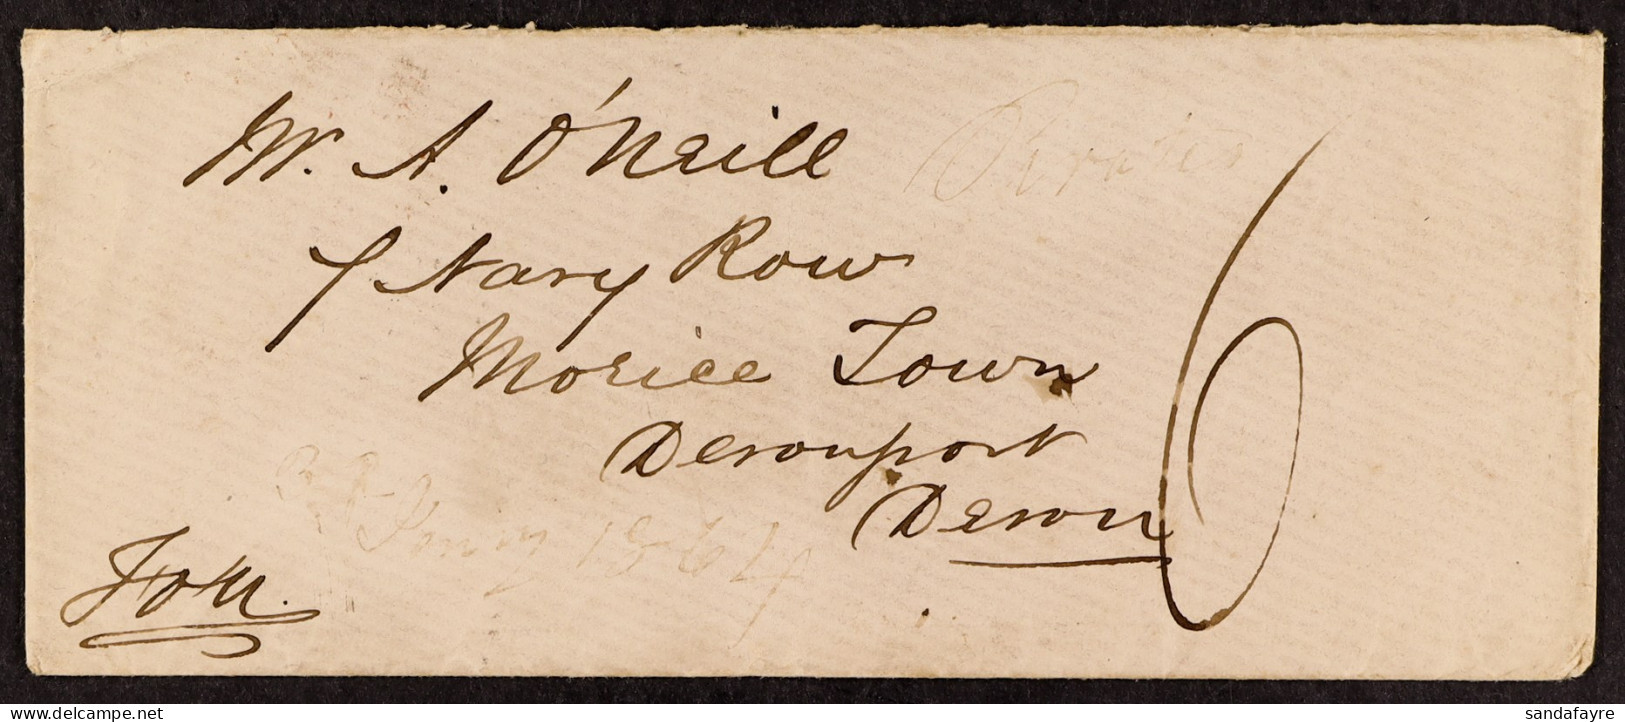 Mr. A. O'Neill
7 Navy Row
Morice Town
Devonport
Devon
6
1864
www.delcampe.net
sandafayre